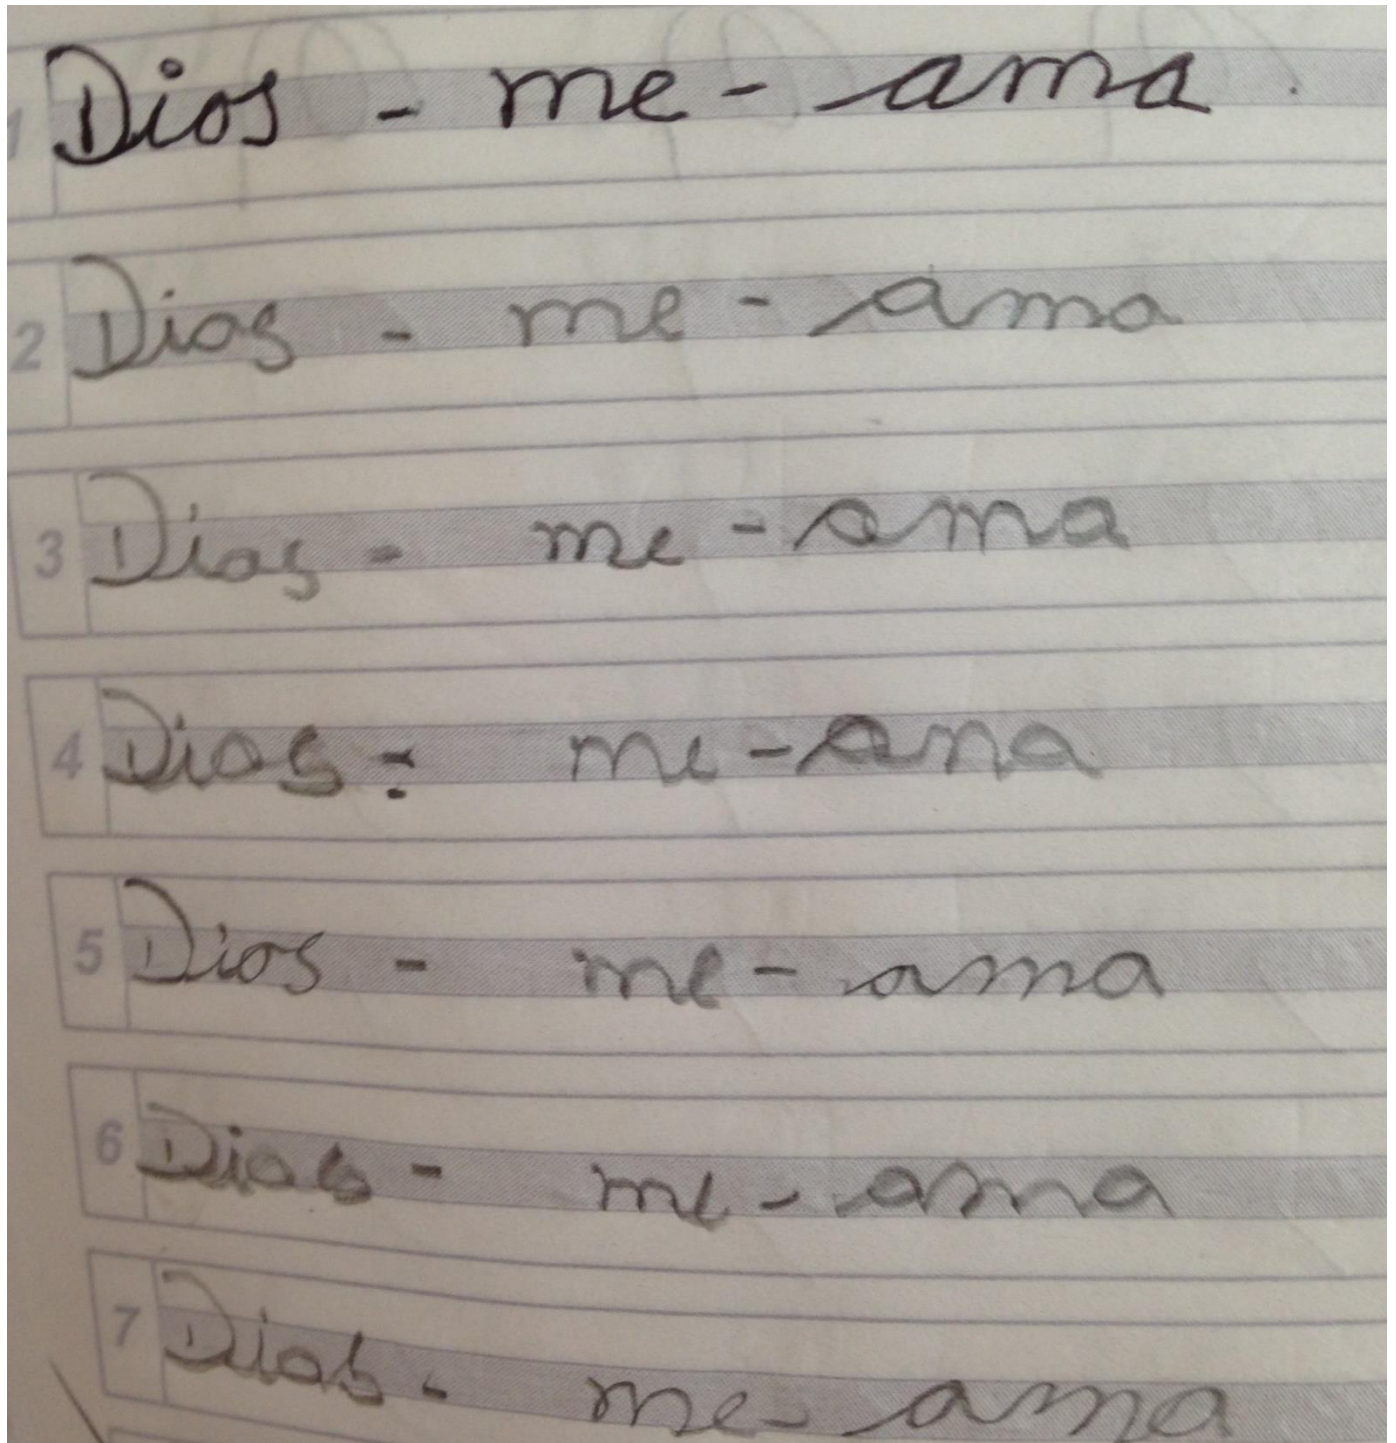 1 Dios - me - ama.
2 Dios - me - ama
3 Dios - me - ama
4 Dios - me - ana
5 Dios - me - ama
6 Dios - me - ama
7 Dios - me - ama